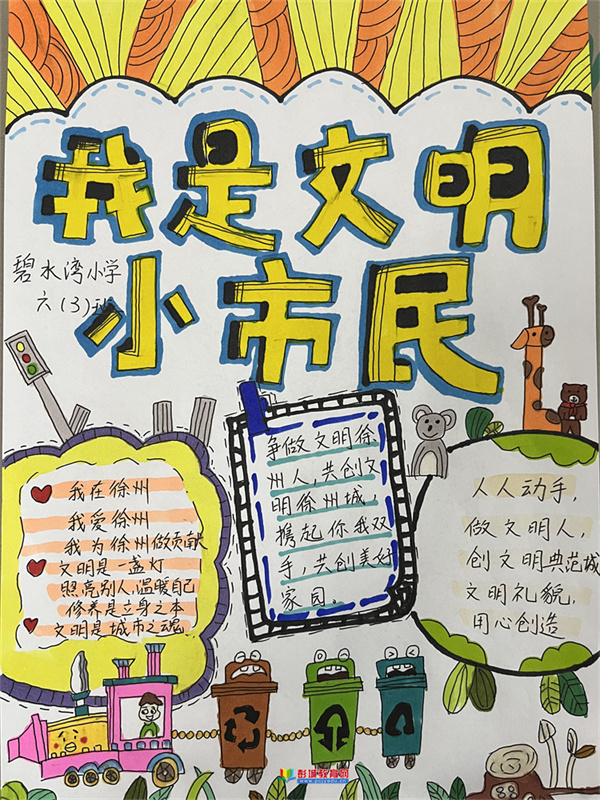 我是文明
小市民
碧水湾小学
六(3)班
我在徐州
我爱徐州
我为徐州做贡献
文明是一盏灯
照亮别人,温暖自己
修养是立身之本
文明是城市之魂
争做文明徐
州人,共创文
明徐州城,
携起你我双
手,共创美好
家园。
人人动手,
做文明人,
创文明典范城
文明礼貌,
用心创造
彭城教育网